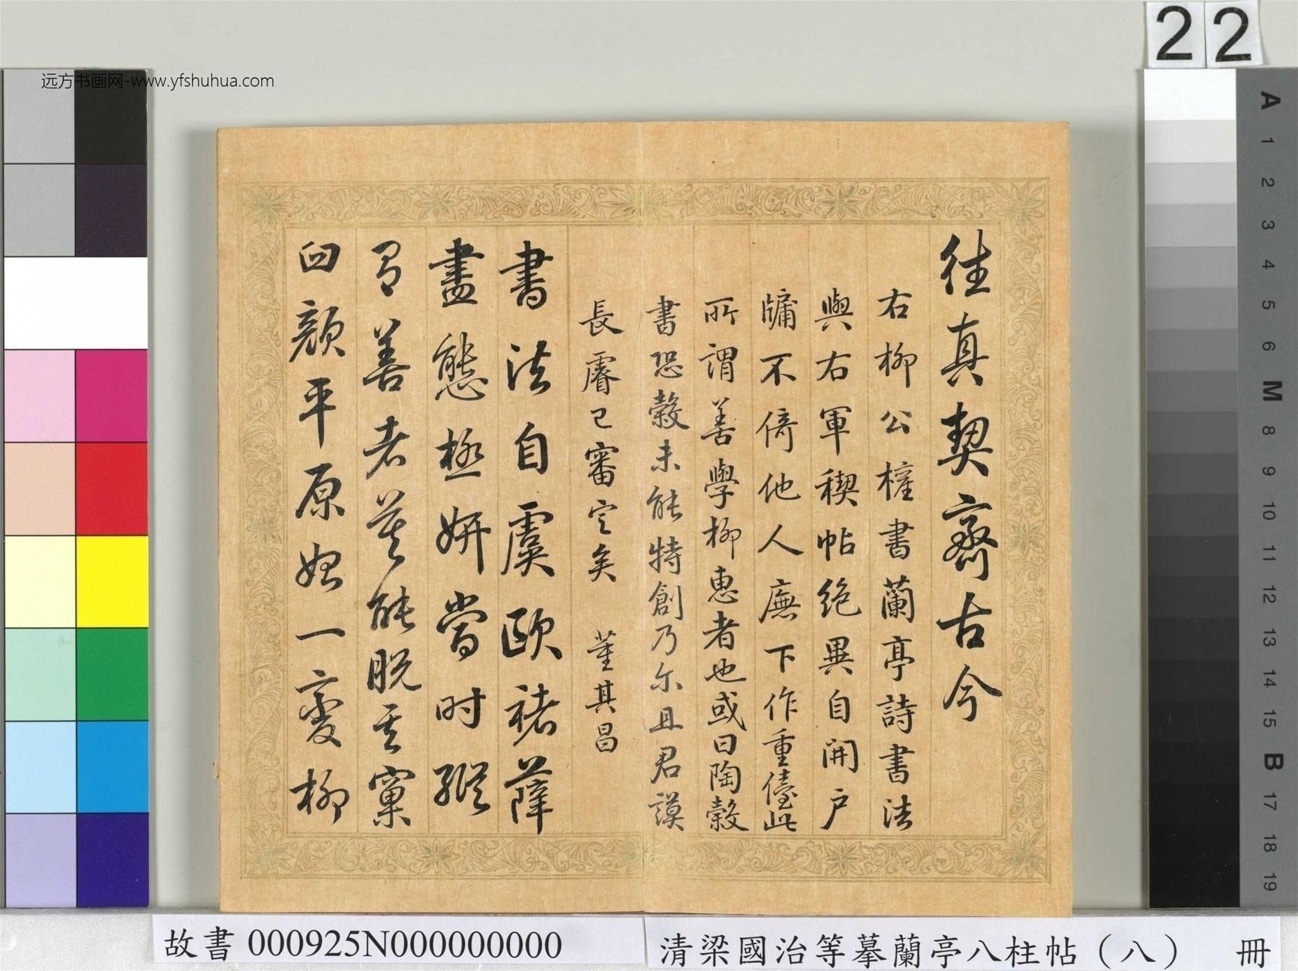 远方书画网-www.yfshuhua.com
22
往真契齋古今
右柳公權書蘭亭詩書法
與右軍稧帖絶異自開户
牖不倚他人廡下作重儓此
所謂善學柳惠者也或曰陶縠
書恐縠未能特創乃尔且君謨
長睿已審定矣 董其昌
書法自虞歐褚薛
盡態極妍當时縱
有善者莫能脱其窠
臼顔平原始一變柳
A
1
2
3
4
5
6
M
8
9
10
11
12
13
14
15
B
17
18
19
故書 000925N000000000
清梁國治等摹蘭亭八柱帖（八） 冊